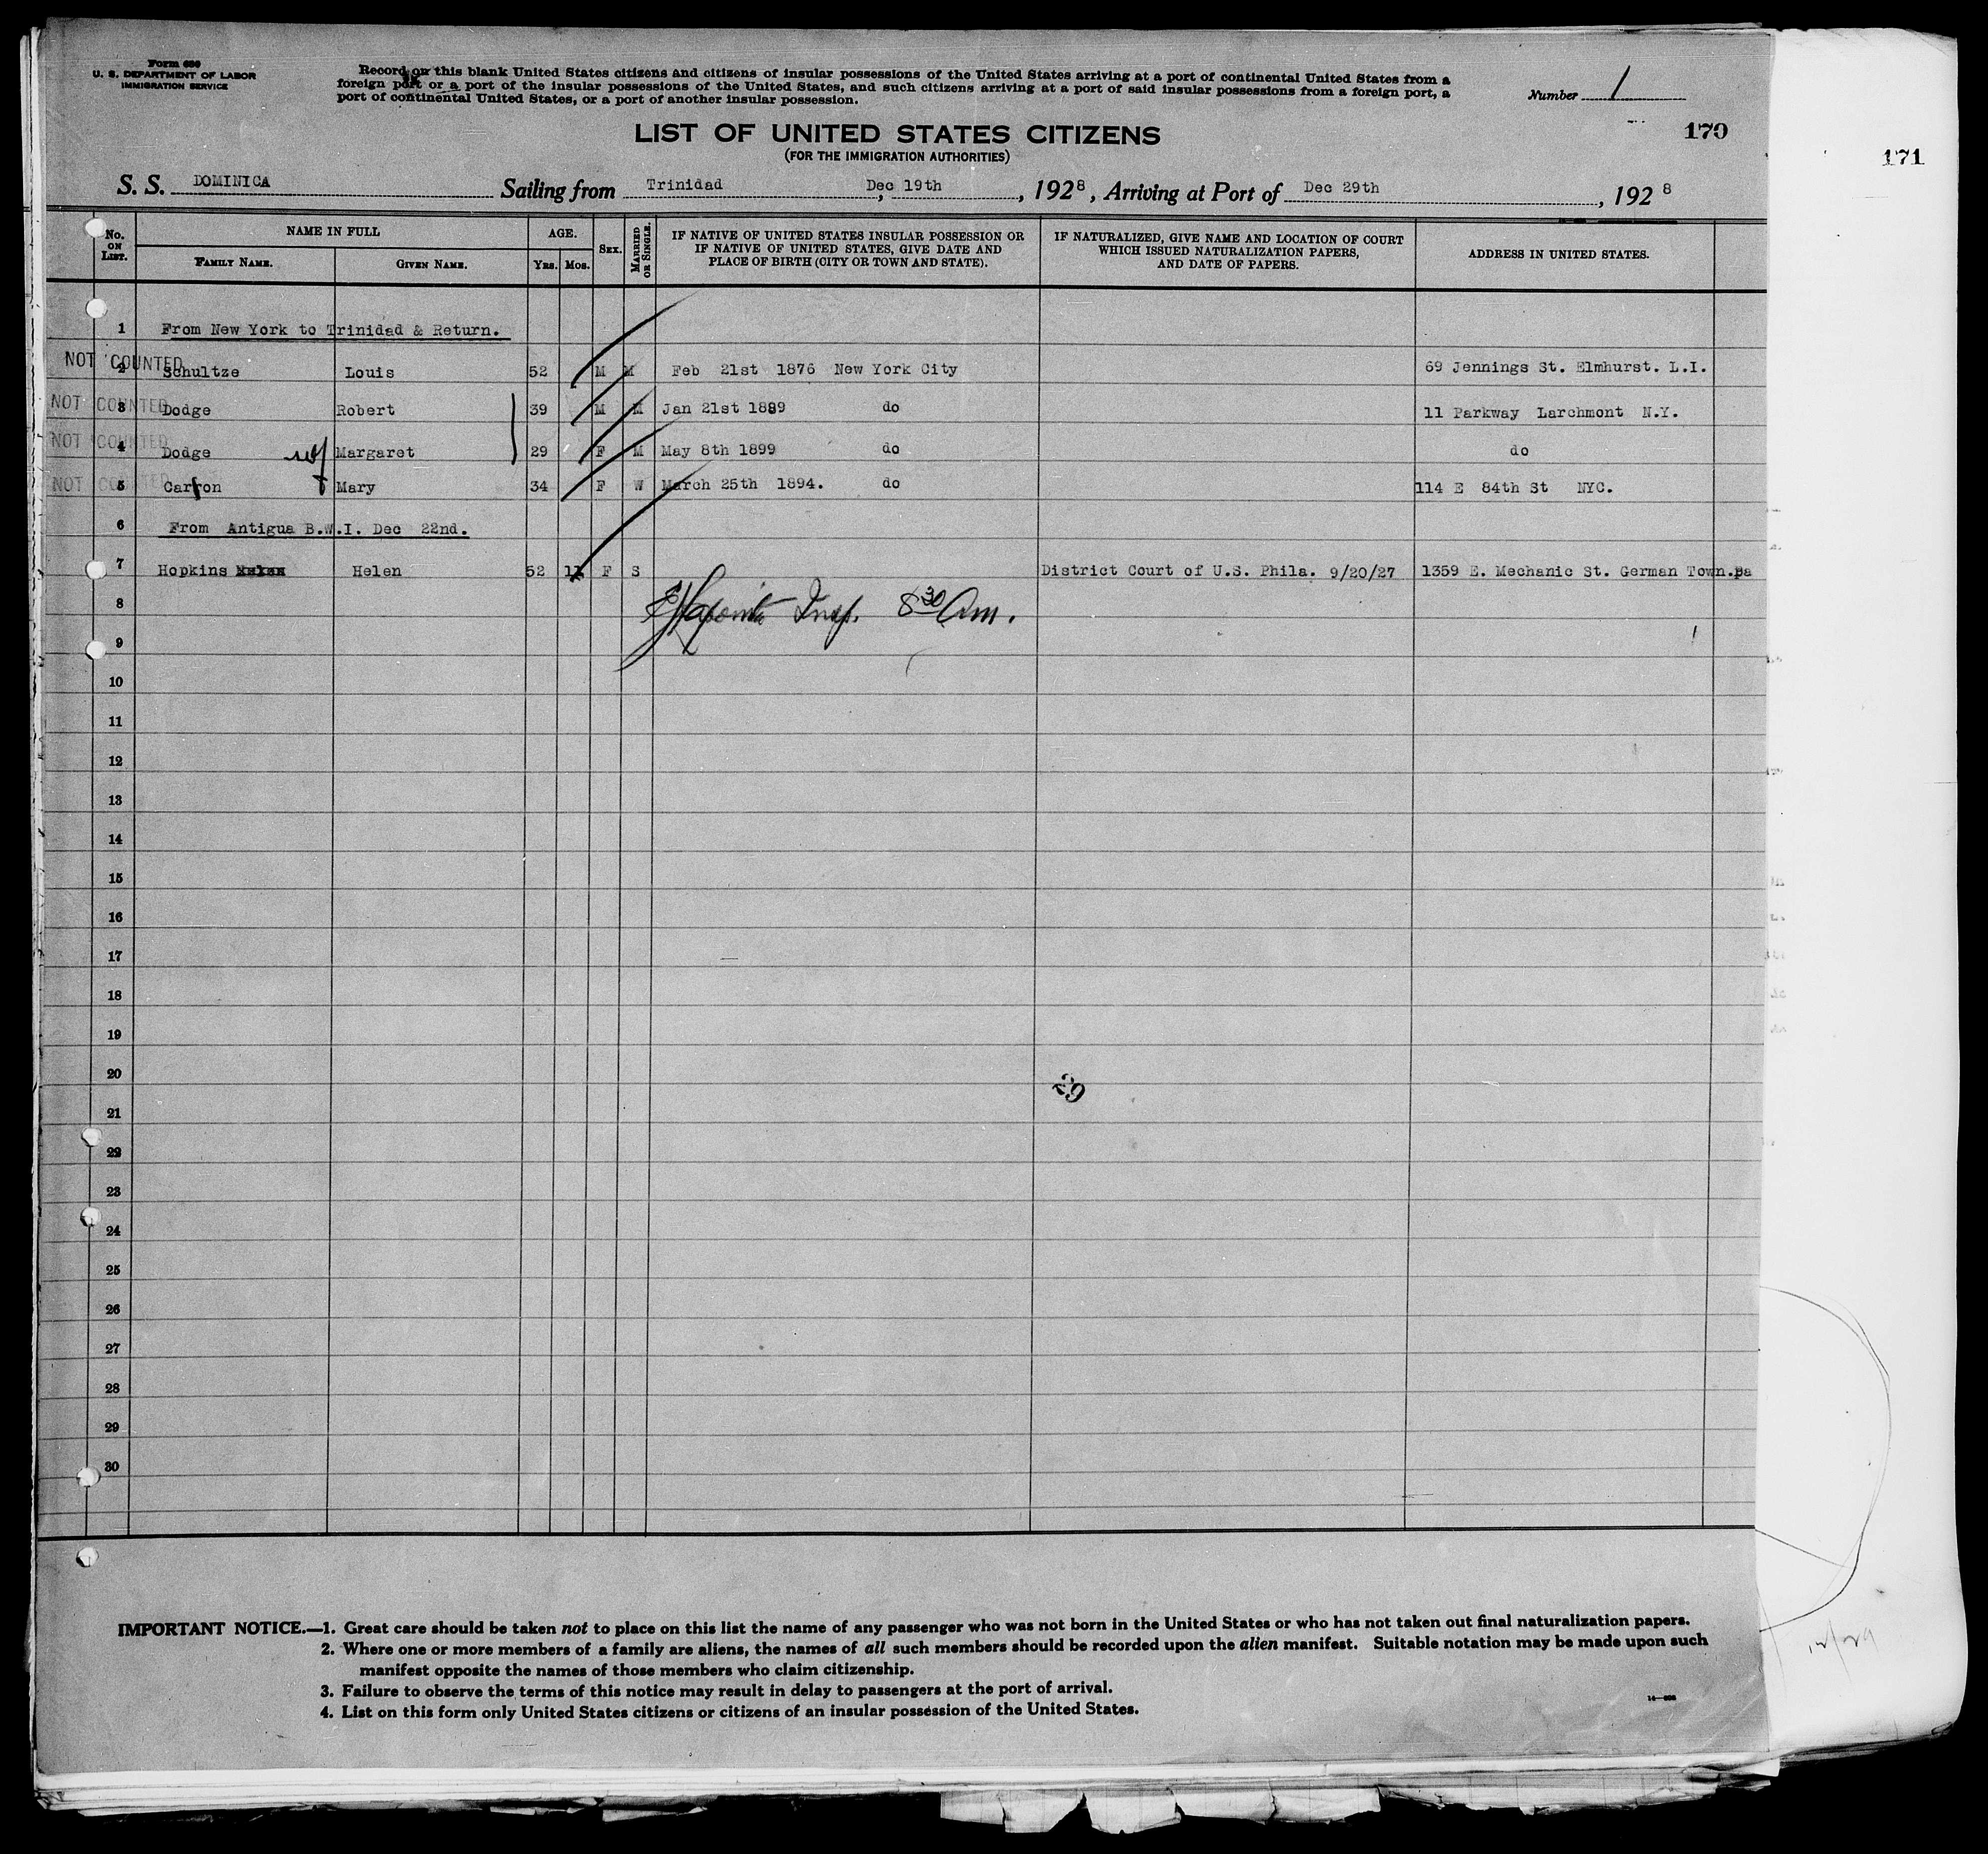 Form 630
U. S. DEPARTMENT OF LABOR
IMMIGRATION SERVICE
Record on this blank United States citizens and citizens of insular possessions of the United States arriving at a port of continental United States from a
foreign port or a port of the insular possessions of the United States, and such citizens arriving at a port of said insular possessions from a foreign port, a
port of continental United States, or a port of another insular possession.
Number 1
170
171
LIST OF UNITED STATES CITIZENS
(FOR THE IMMIGRATION AUTHORITIES)
S. S. DOMINICA Sailing from Trinidad, Dec 19th, 1928, Arriving at Port of Dec 29th, 1928
No. ON LIST. NAME IN FULL FAMILY NAME. GIVEN NAME. AGE. YRS. MOS. SEX. MARRIED OR SINGLE. IF NATIVE OF UNITED STATES INSULAR POSSESSION OR IF NATIVE OF UNITED STATES, GIVE DATE AND PLACE OF BIRTH (CITY OR TOWN AND STATE). IF NATURALIZED, GIVE NAME AND LOCATION OF COURT WHICH ISSUED NATURALIZATION PAPERS, AND DATE OF PAPERS. ADDRESS IN UNITED STATES.
1 From New York to Trinidad & Return.
NOT COUNTED 2 Schultze Louis 52 M M Feb 21st 1876 New York City 69 Jennings St. Elmhurst. L.I.
NOT COUNTED 3 Dodge Robert 39 M M Jan 21st 1889 do 11 Parkway Larchmont N.Y.
NOT COUNTED 4 Dodge wf Margaret 29 F M May 8th 1899 do do
NOT COUNTED 5 Carron Mary 34 F W March 25th 1894. do 114 E 84th St NYC.
6 From Antigua B.W.I. Dec 22nd.
7 Hopkins Helen 52 11 F S District Court of U.S. Phila. 9/20/27 1359 E. Mechanic St. German Town.Pa
8 Insp. 8 30 Am.
9
10
11
12
13
14
15
16
17
18
19
20
29
21
22
23
24
25
26
27
28
29
30
IMPORTANT NOTICE.—1. Great care should be taken not to place on this list the name of any passenger who was not born in the United States or who has not taken out final naturalization papers.
2. Where one or more members of a family are aliens, the names of all such members should be recorded upon the alien manifest. Suitable notation may be made upon such
manifest opposite the names of those members who claim citizenship.
3. Failure to observe the terms of this notice may result in delay to passengers at the port of arrival.
4. List on this form only United States citizens or citizens of an insular possession of the United States.